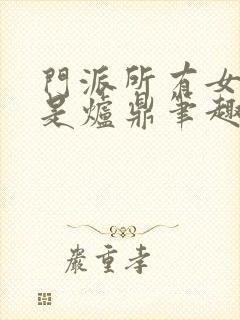 門派所有女
是爐鼎筆趣
嚴重孝